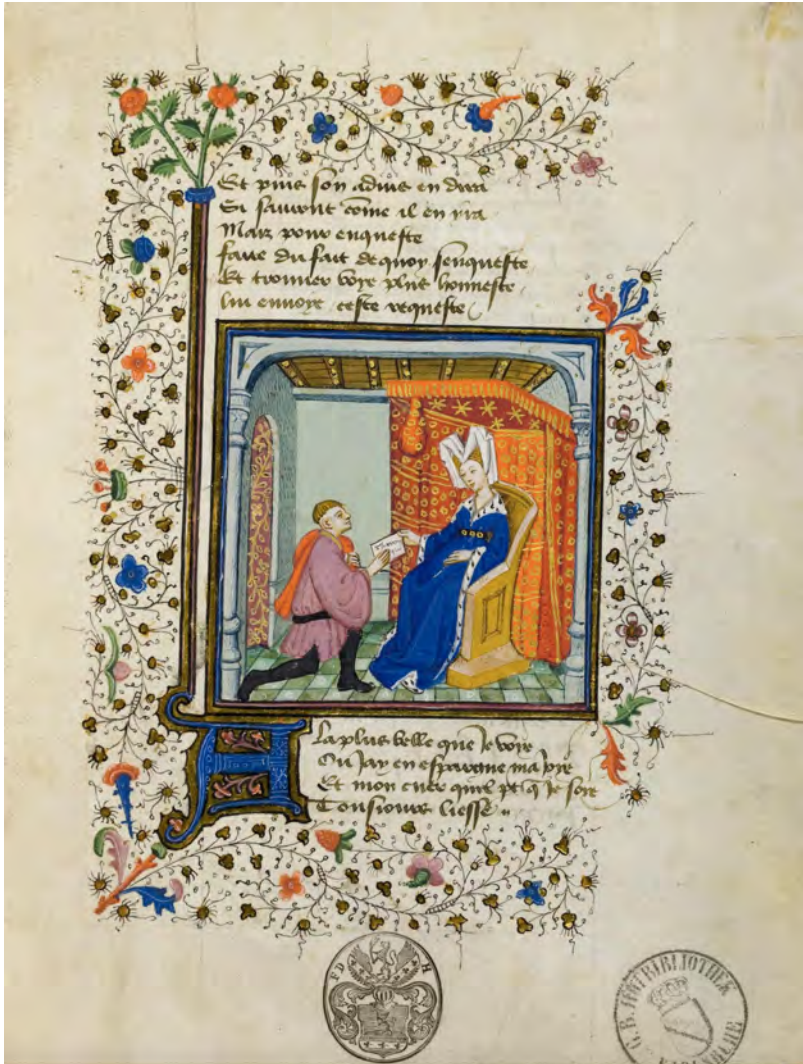 Et puis son aduis en dira
Si sauront come il en yra
Mais pour enqueste
faire du fait de quoy senqueste
Et trouuer voye plus honneste
lui enuoye ceste requeste
A
La plus belle que Je voye
Ou Jay en esperance ma Joye
Et mon cuer quel pt q Je soye
Tousiours liesse
F D H
G. B. HOFBIBLIOTHEK